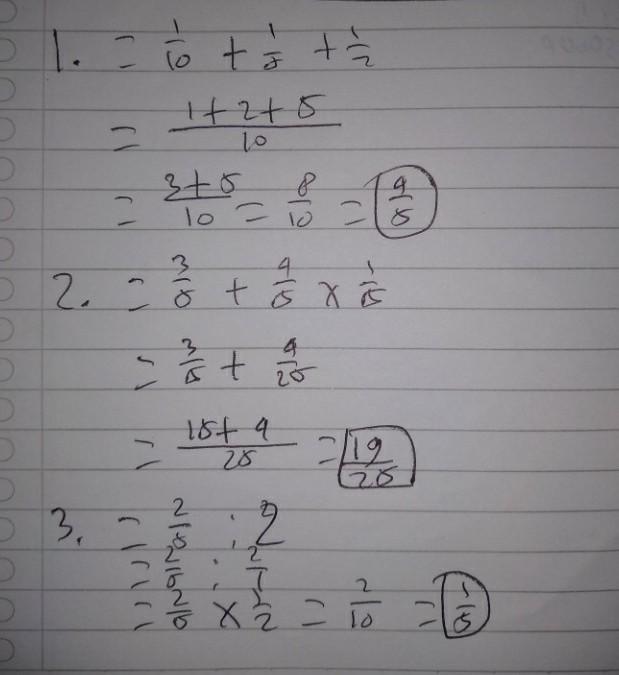 1. = 1/10 + 1/5 + 1/2
= (1+2+5)/10
= (3+5)/10 = 8/10 = 4/5
2. = 3/5 + 4/5 x 1/5
= 3/5 + 4/25
= (15+4)/25 = 19/25
3. = 2/5 : 2
= 2/5 : 2/1
= 2/5 x 1/2 = 2/10 = 1/5